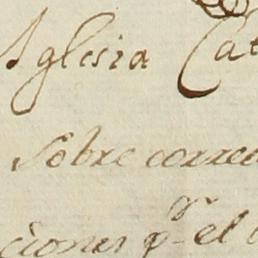 Iglesia Cat
Sobre correc
ciones pr el